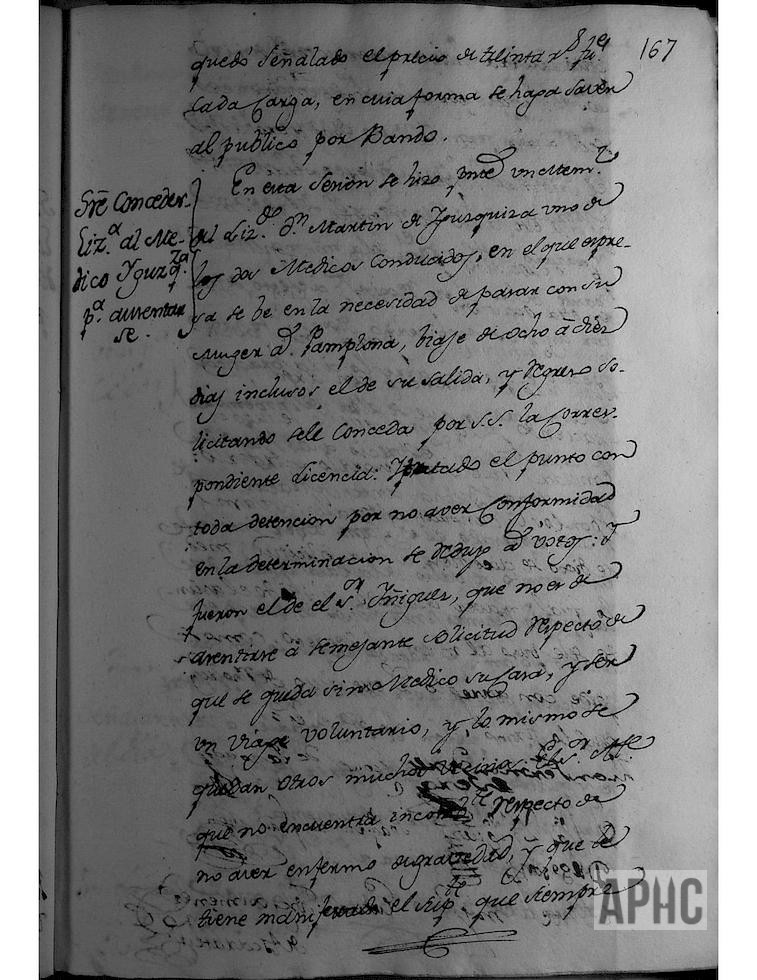 167
quedó señalado el precio de treinta r.s
cada Carga, en cuia forma se haga saver
al publico por Bando.
Sre Conceder
liz.a al Me-
dico Yguzq.za
p.a ausentar
se.
En esta sesion se hizo pnte un mem.l
del Liz.do Dn Martin de Yguzquiza uno de
los dos Medicos Conducidos, en el que espre-
sa se be en la necesidad de pasar con su
Muger a Pamplona, biaje de ocho a diez
dias inclusos el de su salida, y regreso so-
licitando se le Conceda por S.S. la Corres-
pondiente Licencia: Y tratado el punto con
toda detencion por no aver Conformidad
en la determinacion se redujo a votos: Y
fueron el de el S.or Yñiguez, que no es de
asentirse á semejante solicitud respecto de
que se queda sin Medico su Casa, y ser
un viage voluntario, y lo mismo se
quedan otros muchos vecinos. El S.or
que no encuentra incom.te respecto de
no aver enfermo de gravedad, y que se
tiene manifestado el sup.te que siempre
APHC